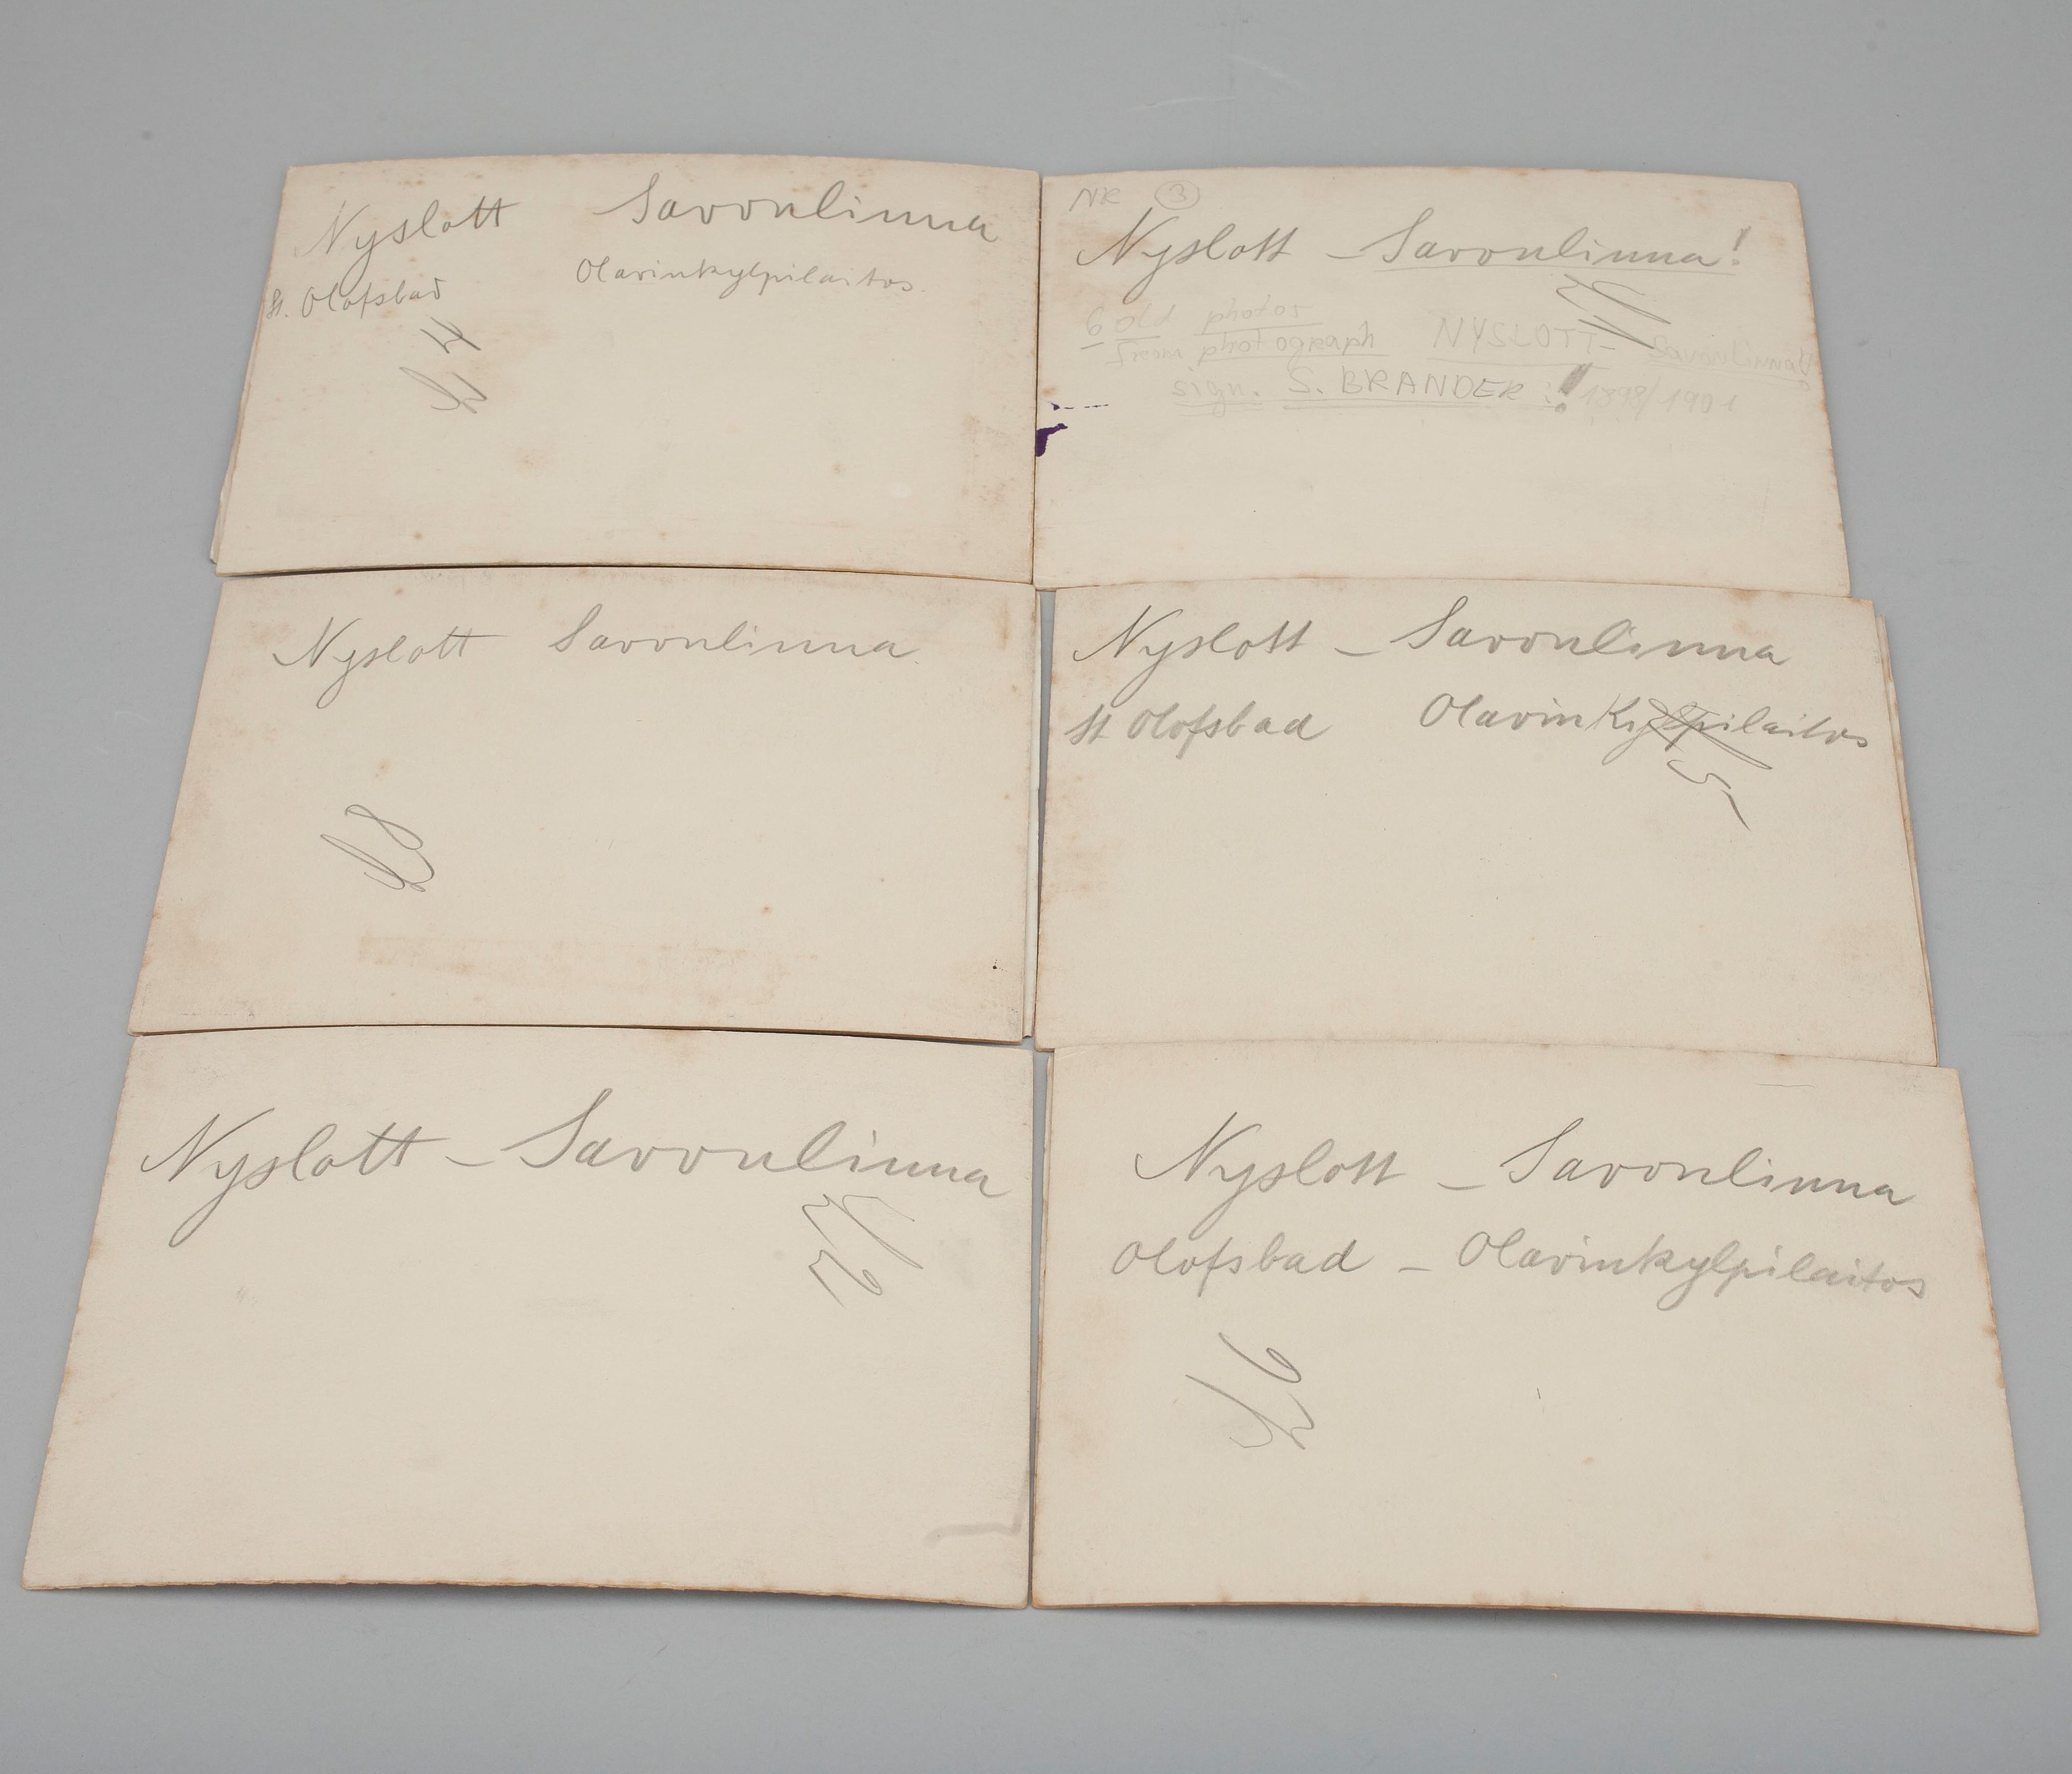 Nyslott Savonlinna
St. Olofsbad Olavinkylpilaitos.
4
NR 3
Nyslott – Savonlinna!
6 old photos
from photograph NYSLOTT – Savonlinna!
sign. S. BRANDER! 1898/1901
Nyslott Savonlinna.
Nyslott – Savonlinna
St Olofsbad Olavinkylpilaitos
5
Nyslott – Savonlinna
Nyslott – Savonlinna
Olofsbad – Olavinkylpilaitos